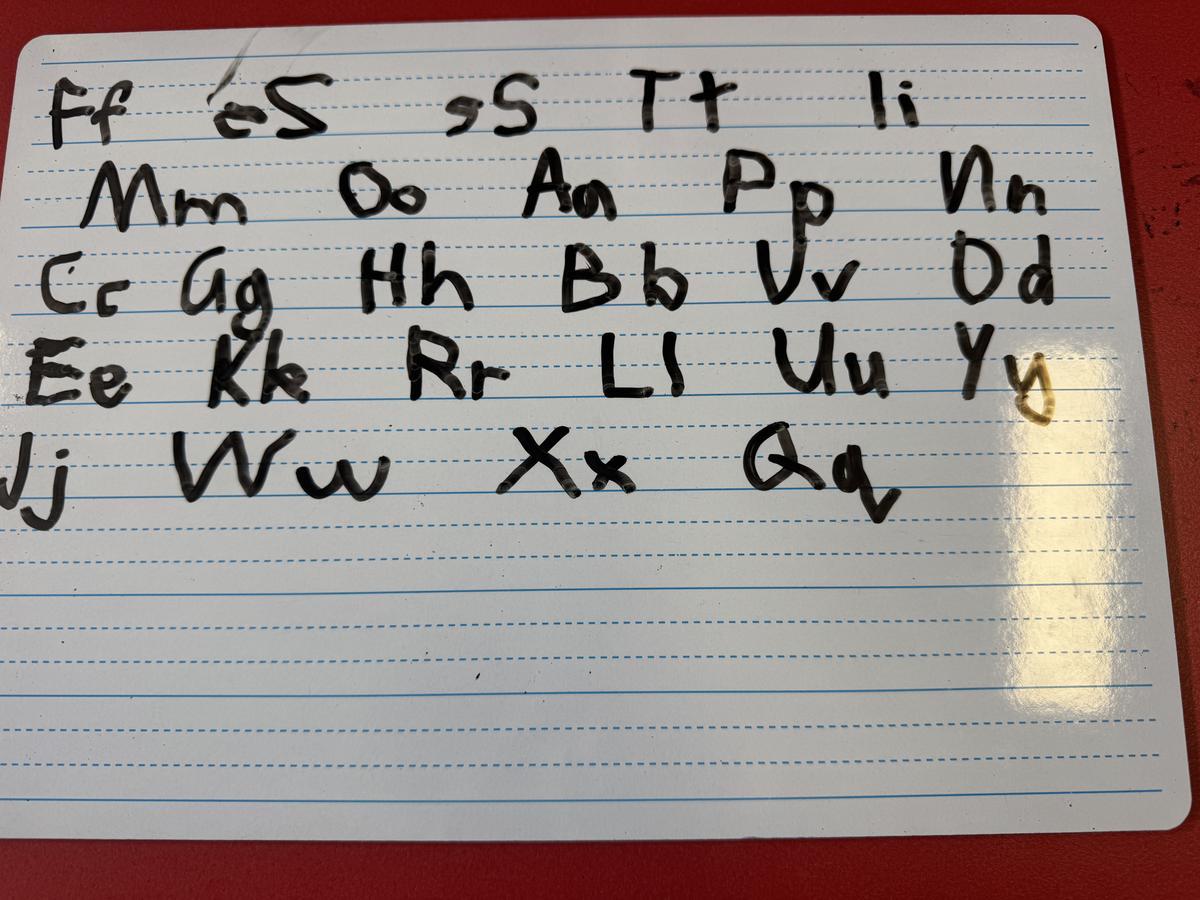 Ff eS sS Tt Ii
Mm Oo Aa Pp Nn
Cc Gg Hh Bb Vv Dd
Ee Kk Rr Ll Uu Yy
Jj Ww Xx Qq